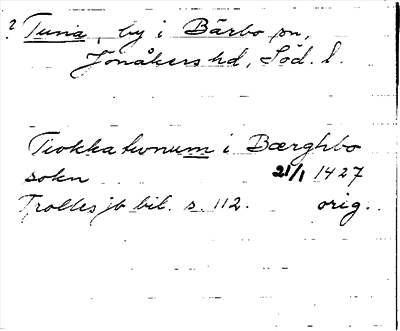 ? Tuna, by i Bärbo sn,
Jönåkers hd, Söd. l.
Tiokka tvonum i Bærghbo
sokn 21/1 1427
Trolles jb bil. s. 112. orig.